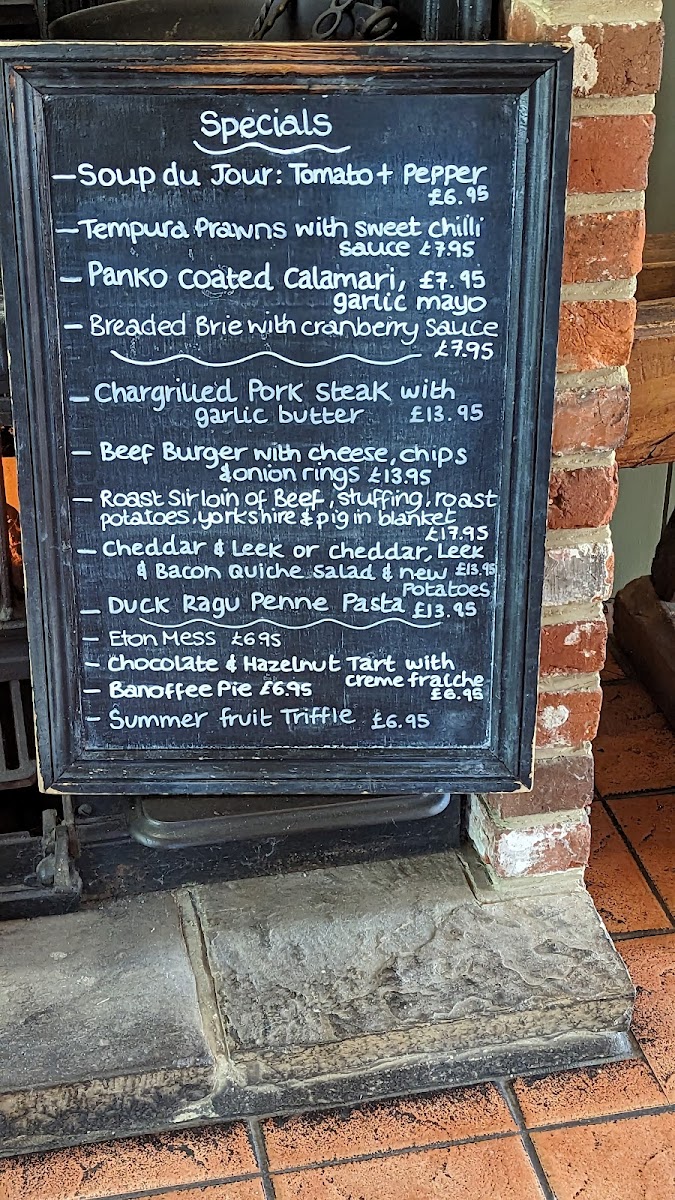 Specials
– Soup du Jour: Tomato + Pepper
£6.95
– Tempura Prawns with sweet chilli
sauce £7.95
– Panko coated Calamari, £7.95
garlic mayo
– Breaded Brie with cranberry sauce
£7.95
– Chargrilled Pork Steak with
garlic butter £13.95
– Beef Burger with cheese, chips
& onion rings £13.95
– Roast Sirloin of Beef, stuffing, roast
potatoes, yorkshire & pig in blanket
£17.95
– Cheddar & Leek or cheddar, Leek
& Bacon Quiche salad & new £13.95
potatoes
– Duck Ragu Penne Pasta £13.95
– Eton Mess £6.95
– Chocolate & Hazelnut Tart with
creme fraiche
£6.95
– Banoffee Pie £6.95
– Summer fruit Triffle £6.95